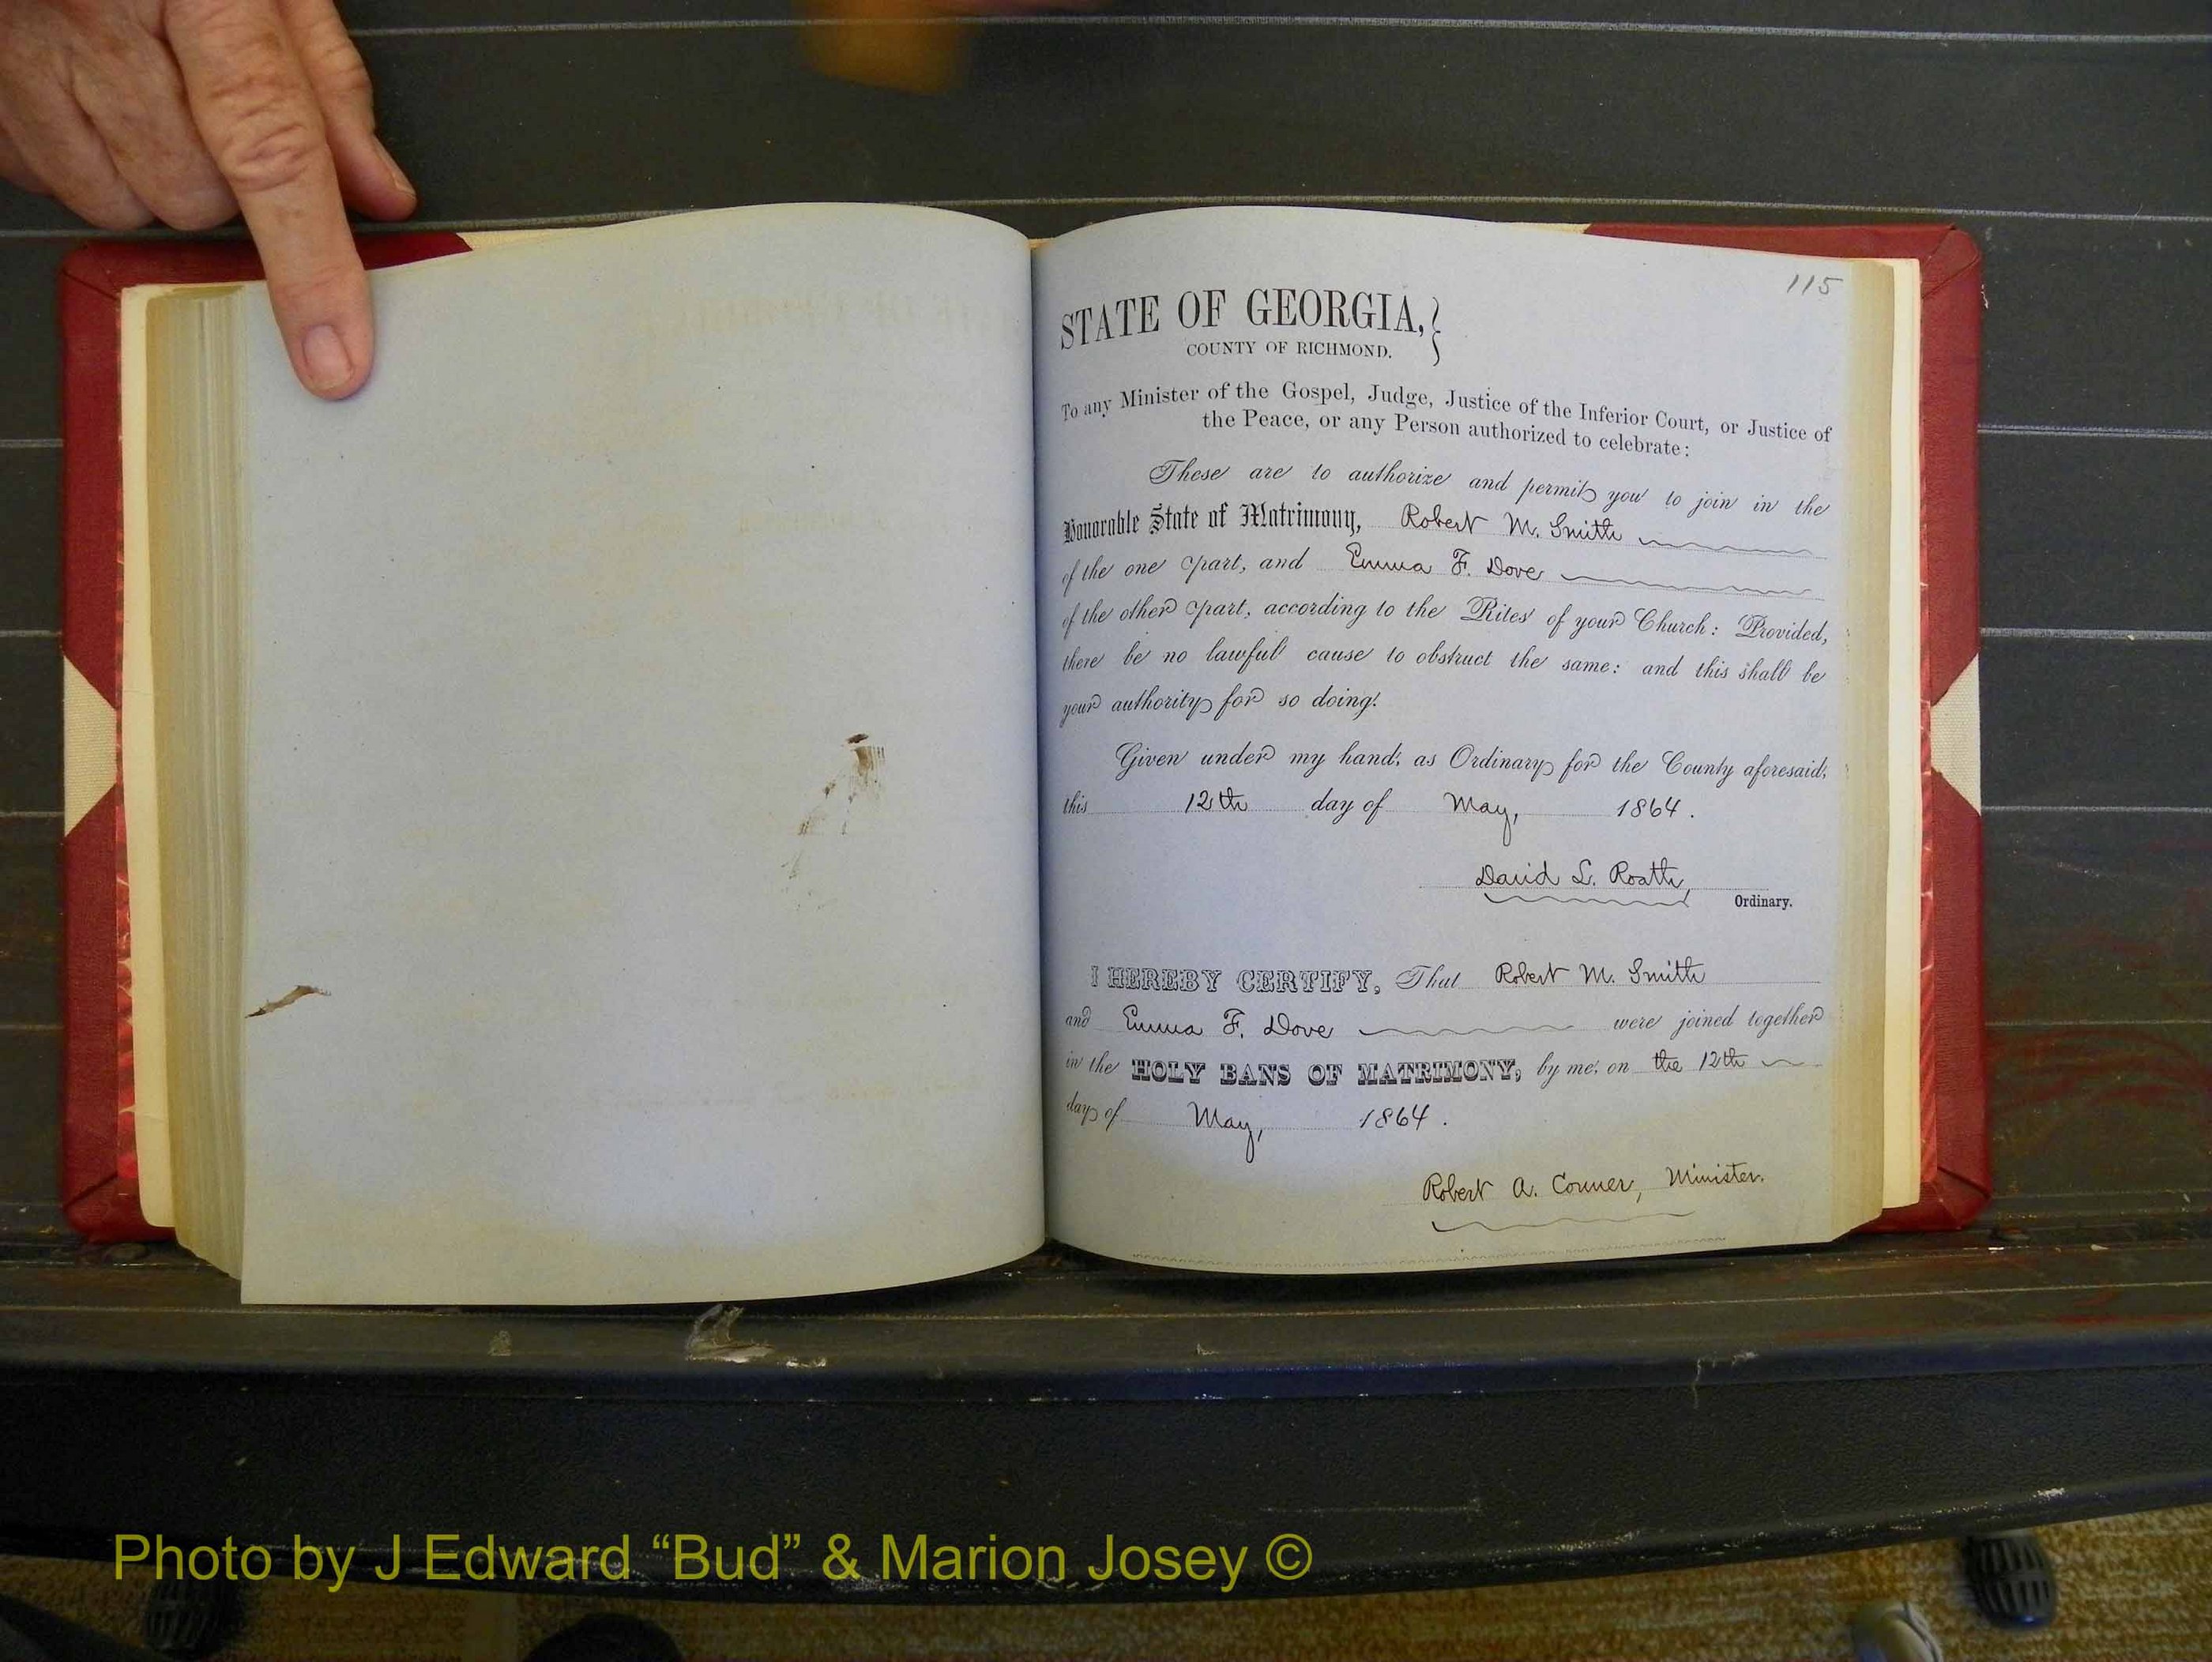 115
STATE OF GEORGIA,
COUNTY OF RICHMOND.
To any Minister of the Gospel, Judge, Justice of the Inferior Court, or Justice of
the Peace, or any Person authorized to celebrate:
These are to authorize and permit you to join in the
Honorable State of Matrimony, Robert M. Smith
of the one part, and Emma F. Dove
of the other part, according to the Rites of your Church: Provided,
there be no lawful cause to obstruct the same: and this shall be
your authority for so doing.
Given under my hand, as Ordinary for the County aforesaid,
this 12th day of May, 1864.
David L. Roath,
Ordinary.
I HEREBY CERTIFY, That Robert M. Smith
and Emma F. Dove were joined together
in the HOLY BANS OF MATRIMONY, by me, on the 12th
day of May, 1864.
Robert A. Conner, Minister.
Photo by J Edward “Bud” & Marion Josey ©